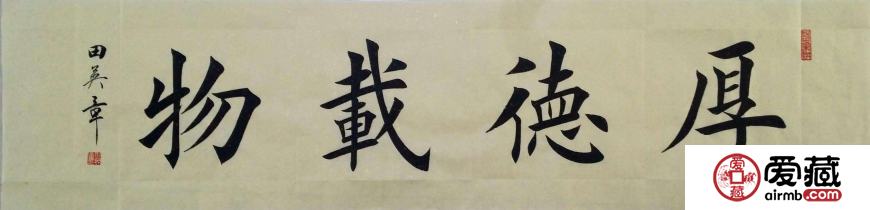 厚德載物
田英章
爱藏
airmb.com
爱藏